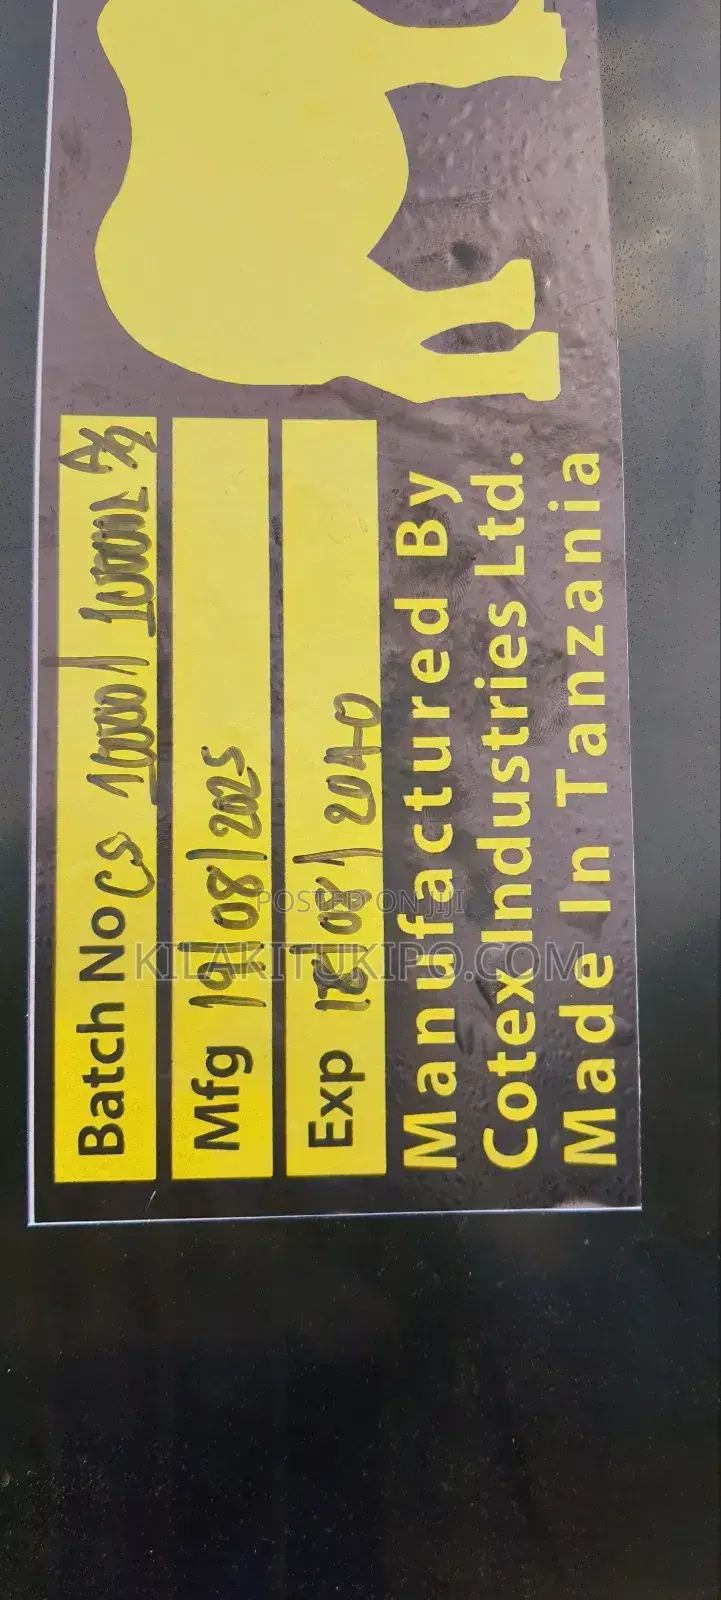 Batch No CS 10000/ 10000L
Mfg 19/08/2025
Exp 18/08/2040
Manufactured By
Cotex Industries Ltd.
Made In Tanzania
POSTED ON JIJI
KILAKITUKIPO.COM